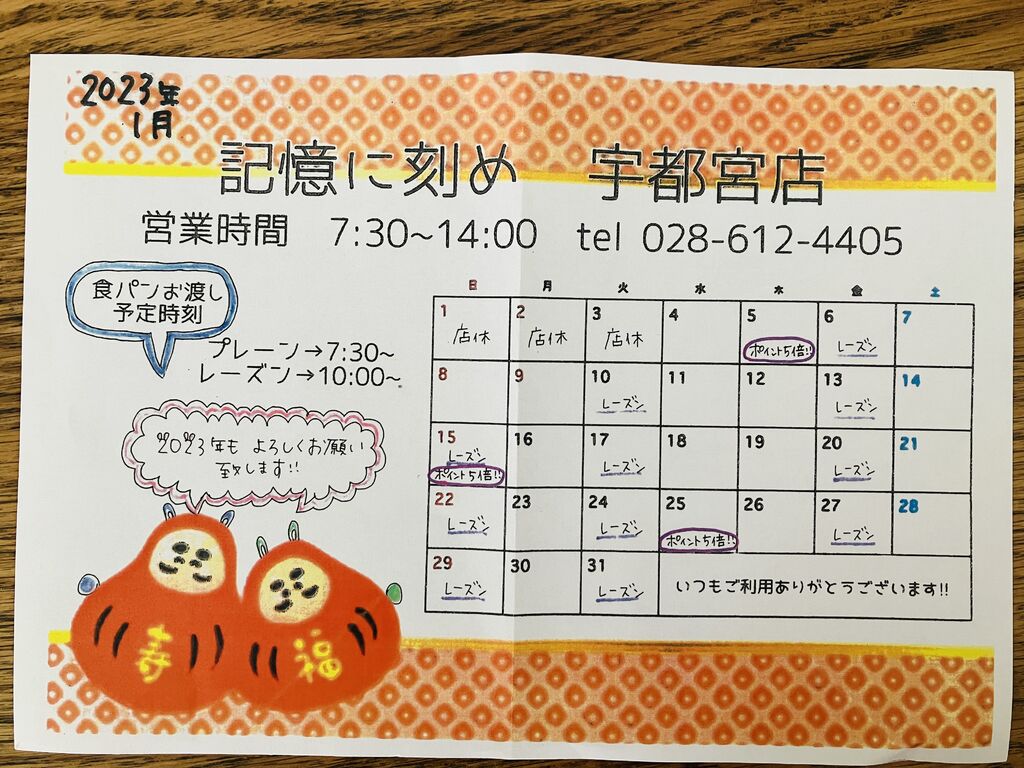 2023年
1月
記憶に刻め　宇都宮店
営業時間　7:30~14:00　tel 028-612-4405
食パンお渡し
予定時刻
プレーン→7:30~
レーズン→10:00~
2023年も よろしくお願い
致します!!
寿 福
日 月 火 水 木 金 土
1 2 3 4 5 6 7
店休 店休 店休 ポイント5倍!! レーズン
8 9 10 11 12 13 14
レーズン レーズン
15 16 17 18 19 20 21
レーズン レーズン レーズン
ポイント5倍!!
22 23 24 25 26 27 28
レーズン レーズン ポイント5倍!! レーズン
29 30 31
レーズン レーズン
いつもご利用ありがとうございます!!